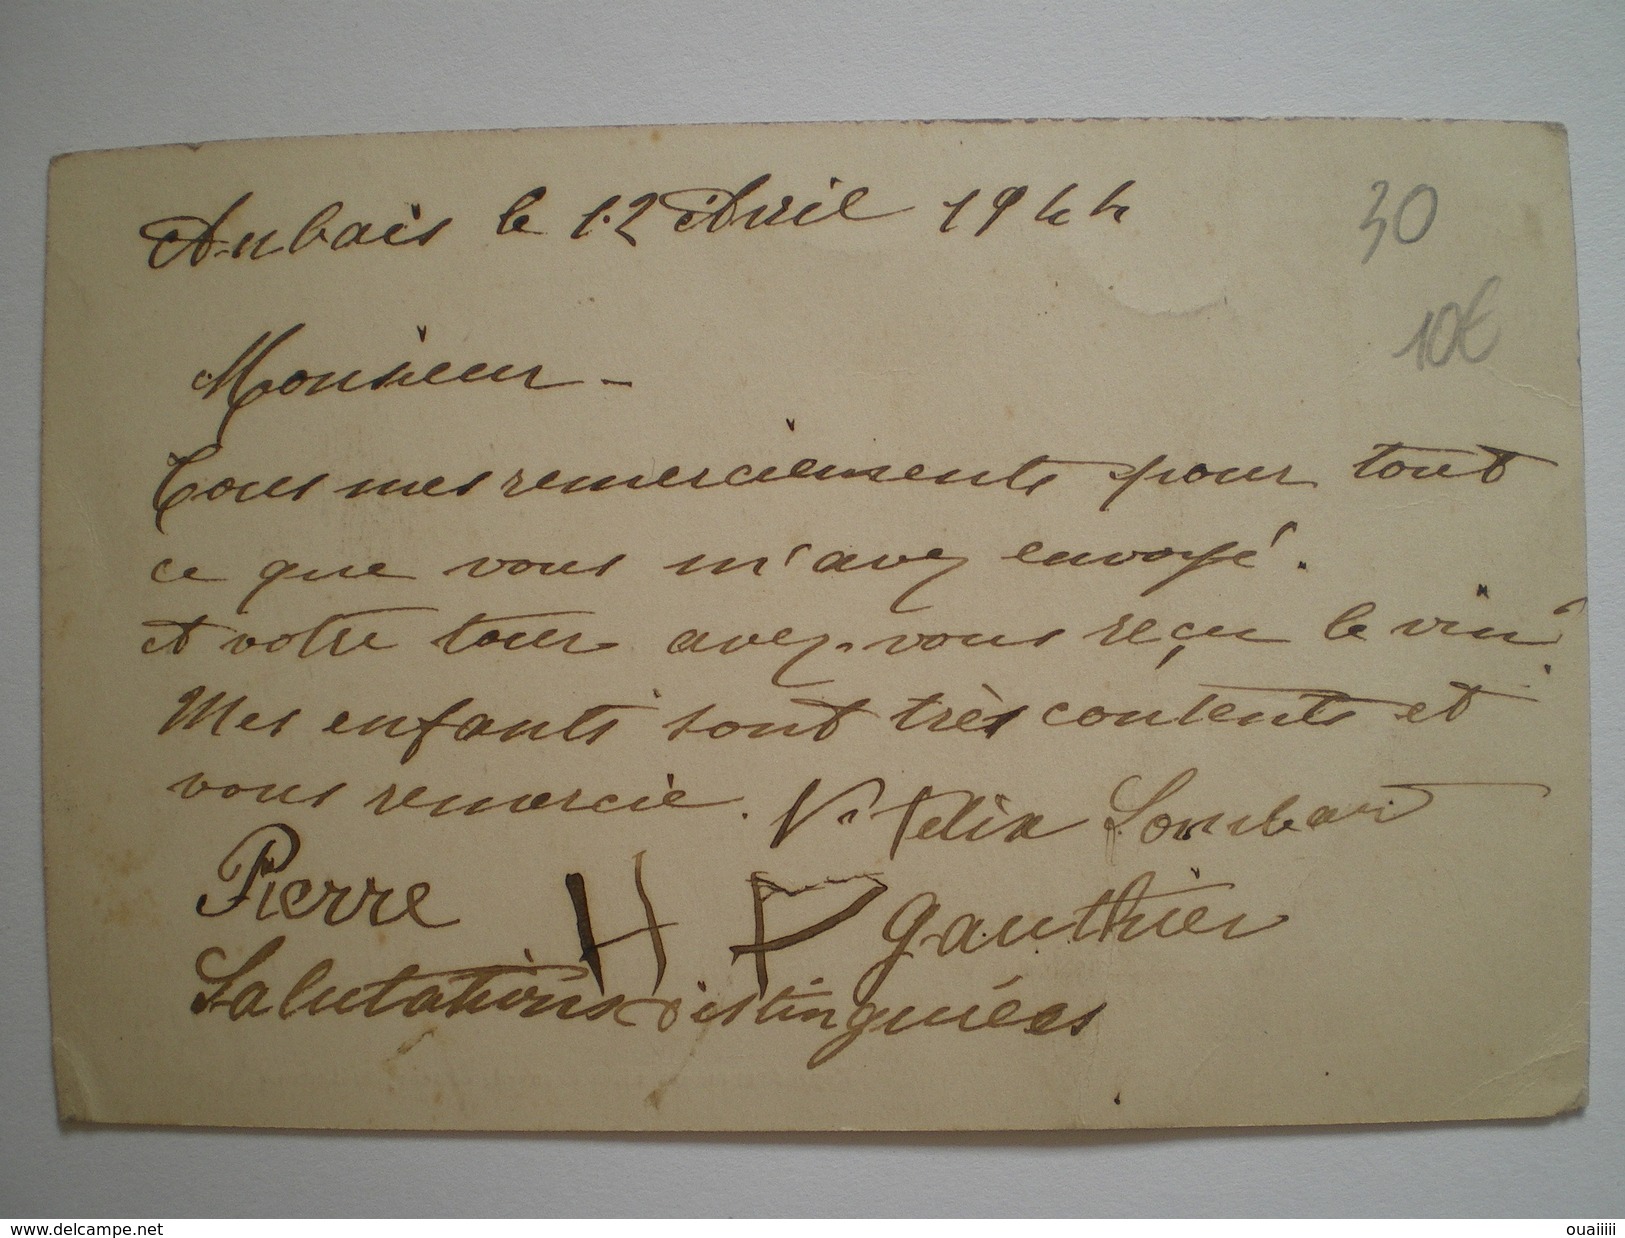 Aubais le 12 Avril 1944
30
10€
Monsieur -
Tous mes remerciements pour tout
ce que vous m'avez envoyé.
et votre tour avez-vous reçu le vin
Mes enfants sont très contents et
vous remercie. Vve Félix Lombard
Pierre H P gauthier
Salutations distinguées
www.delcampe.net
ouaiiii